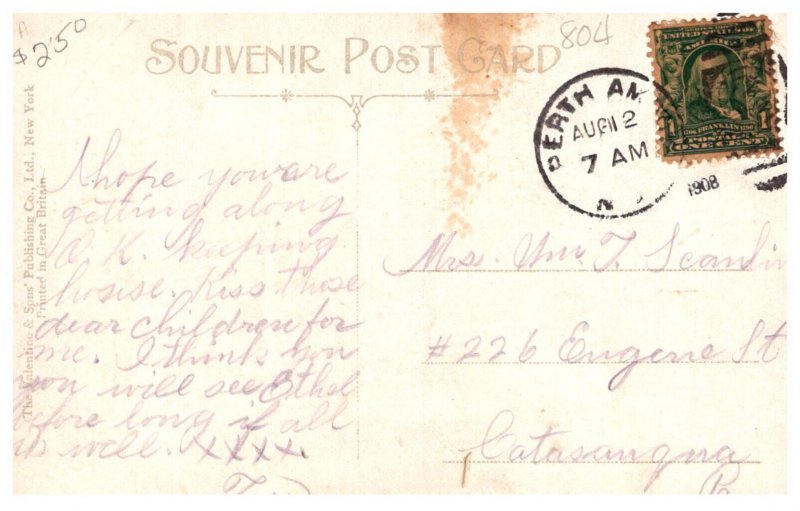 A
$2.50
SOUVENIR POST CARD
804
PERTH AM
AUG 12
7 AM
N J
1908
UNITED STATES OF
AMERICA
1706 FRANKLIN 1790
POSTAGE
1 ONE CENT 1
The Valentine & Sons' Publishing Co., Ltd., New York
Printed in Great Britain
I hope you are
getting along
O.K. keeping
house. Kiss those
dear children for
me. I think you
you will see Ethel
before long if all
is well. XXXX.
Mrs. Wm. T. Scanlin
#226 Eugene St
Catasauqua